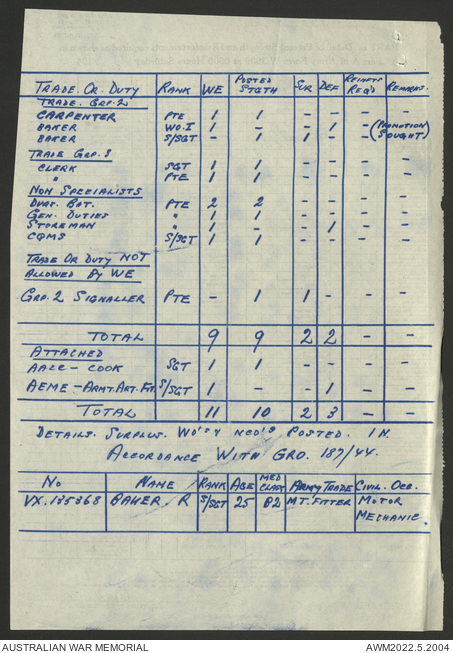 TRADE. OR. DUTY RANK WE POSTED STGTH SUR DEF REINFTS REQ'D REMARKS.
TRADE. GRP. 2
CARPENTER PTE 1 1 - - - -
BAKER WO.I 1 - - 1 - (PROMOTION
BAKER S/SGT - 1 1 - - SOUGHT)
TRADE GRP. 3
CLERK SGT 1 1 - - - -
" PTE 1 1 - - - -
NON SPECIALISTS
DVRS. BAT. PTE 2 2 - - - -
GEN. DUTIES " 1 1 - - - -
STOREMAN " 1 - - 1 - -
CQMS S/SGT 1 1 - - - -
TRADE OR DUTY NOT
ALLOWED BY WE
GRP. 2 SIGNALLER PTE - 1 1 - - -
TOTAL 9 9 2 2 - -
ATTACHED
AACC - COOK SGT 1 1 - - - -
AEME - ARMT. ART. FT. S/SGT 1 - - 1 - -
TOTAL 11 10 2 3 - -
DETAILS. SURPLUS. WO'S & NCO'S POSTED. IN.
ACCORDANCE WITH GRO. 187/44.
No NAME RANK AGE MED CLASS ARMY TRADE CIVIL. OCC.
VX.135368 BAKER R S/SGT 25 B2 MT. FITTER MOTOR
MECHANIC.
AUSTRALIAN WAR MEMORIAL AWM2022.5.2004